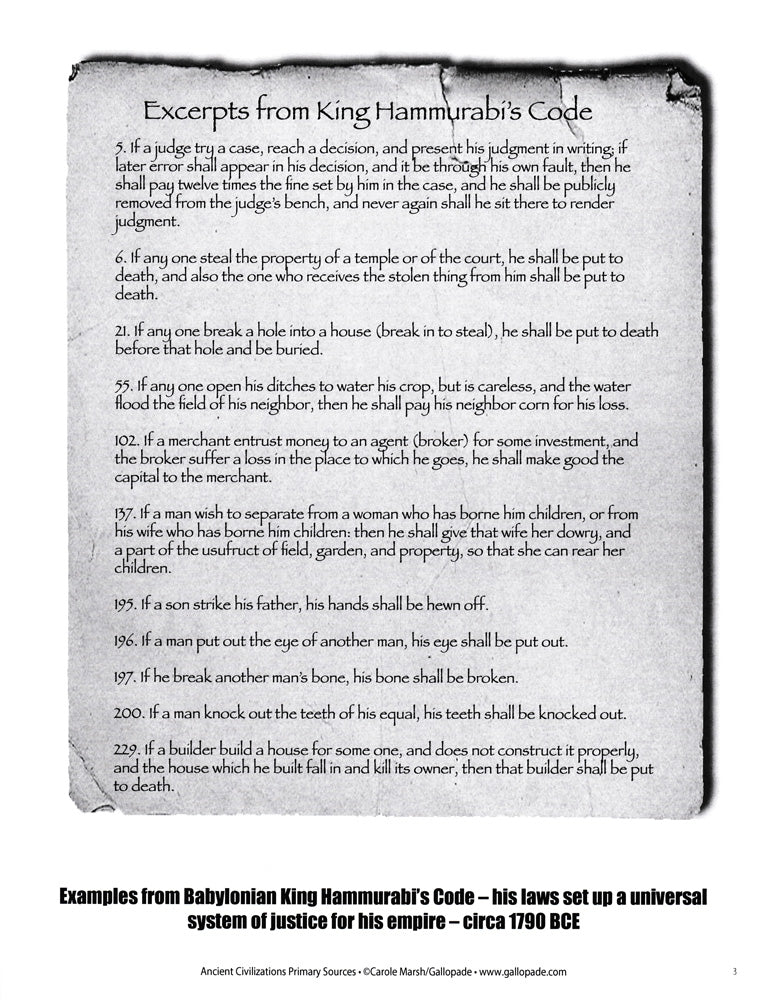 Excerpts from King Hammurabi's Code
5. If a judge try a case, reach a decision, and present his judgment in writing; if
later error shall appear in his decision, and it be through his own fault, then he
shall pay twelve times the fine set by him in the case, and he shall be publicly
removed from the judge's bench, and never again shall he sit there to render
judgment.
6. If any one steal the property of a temple or of the court, he shall be put to
death, and also the one who receives the stolen thing from him shall be put to
death.
21. If any one break a hole into a house (break in to steal), he shall be put to death
before that hole and be buried.
55. If any one open his ditches to water his crop, but is careless, and the water
flood the field of his neighbor, then he shall pay his neighbor corn for his loss.
102. If a merchant entrust money to an agent (broker) for some investment, and
the broker suffer a loss in the place to which he goes, he shall make good the
capital to the merchant.
137. If a man wish to separate from a woman who has borne him children, or from
his wife who has borne him children: then he shall give that wife her dowry, and
a part of the usufruct of field, garden, and property, so that she can rear her
children.
195. If a son strike his father, his hands shall be hewn off.
196. If a man put out the eye of another man, his eye shall be put out.
197. If he break another man's bone, his bone shall be broken.
200. If a man knock out the teeth of his equal, his teeth shall be knocked out.
229. If a builder build a house for some one, and does not construct it properly,
and the house which he built fall in and kill its owner, then that builder shall be put
to death.
Examples from Babylonian King Hammurabi's Code – his laws set up a universal
system of justice for his empire – circa 1790 BCE
Ancient Civilizations Primary Sources • ©Carole Marsh/Gallopade • www.gallopade.com 3